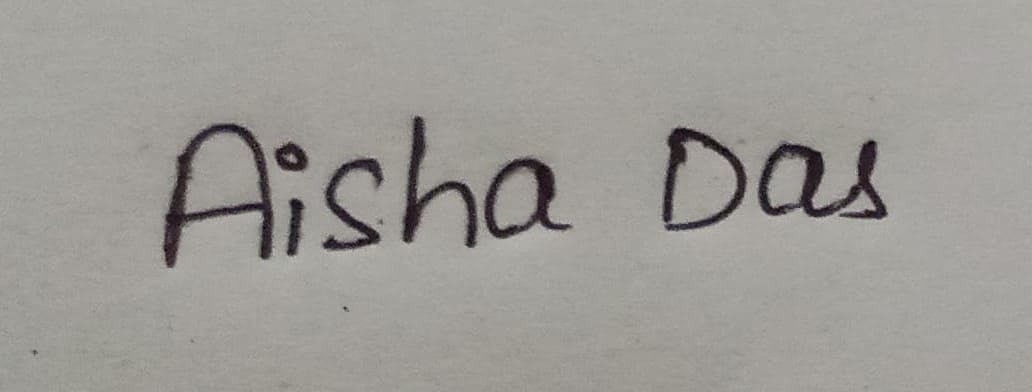 Aisha Das